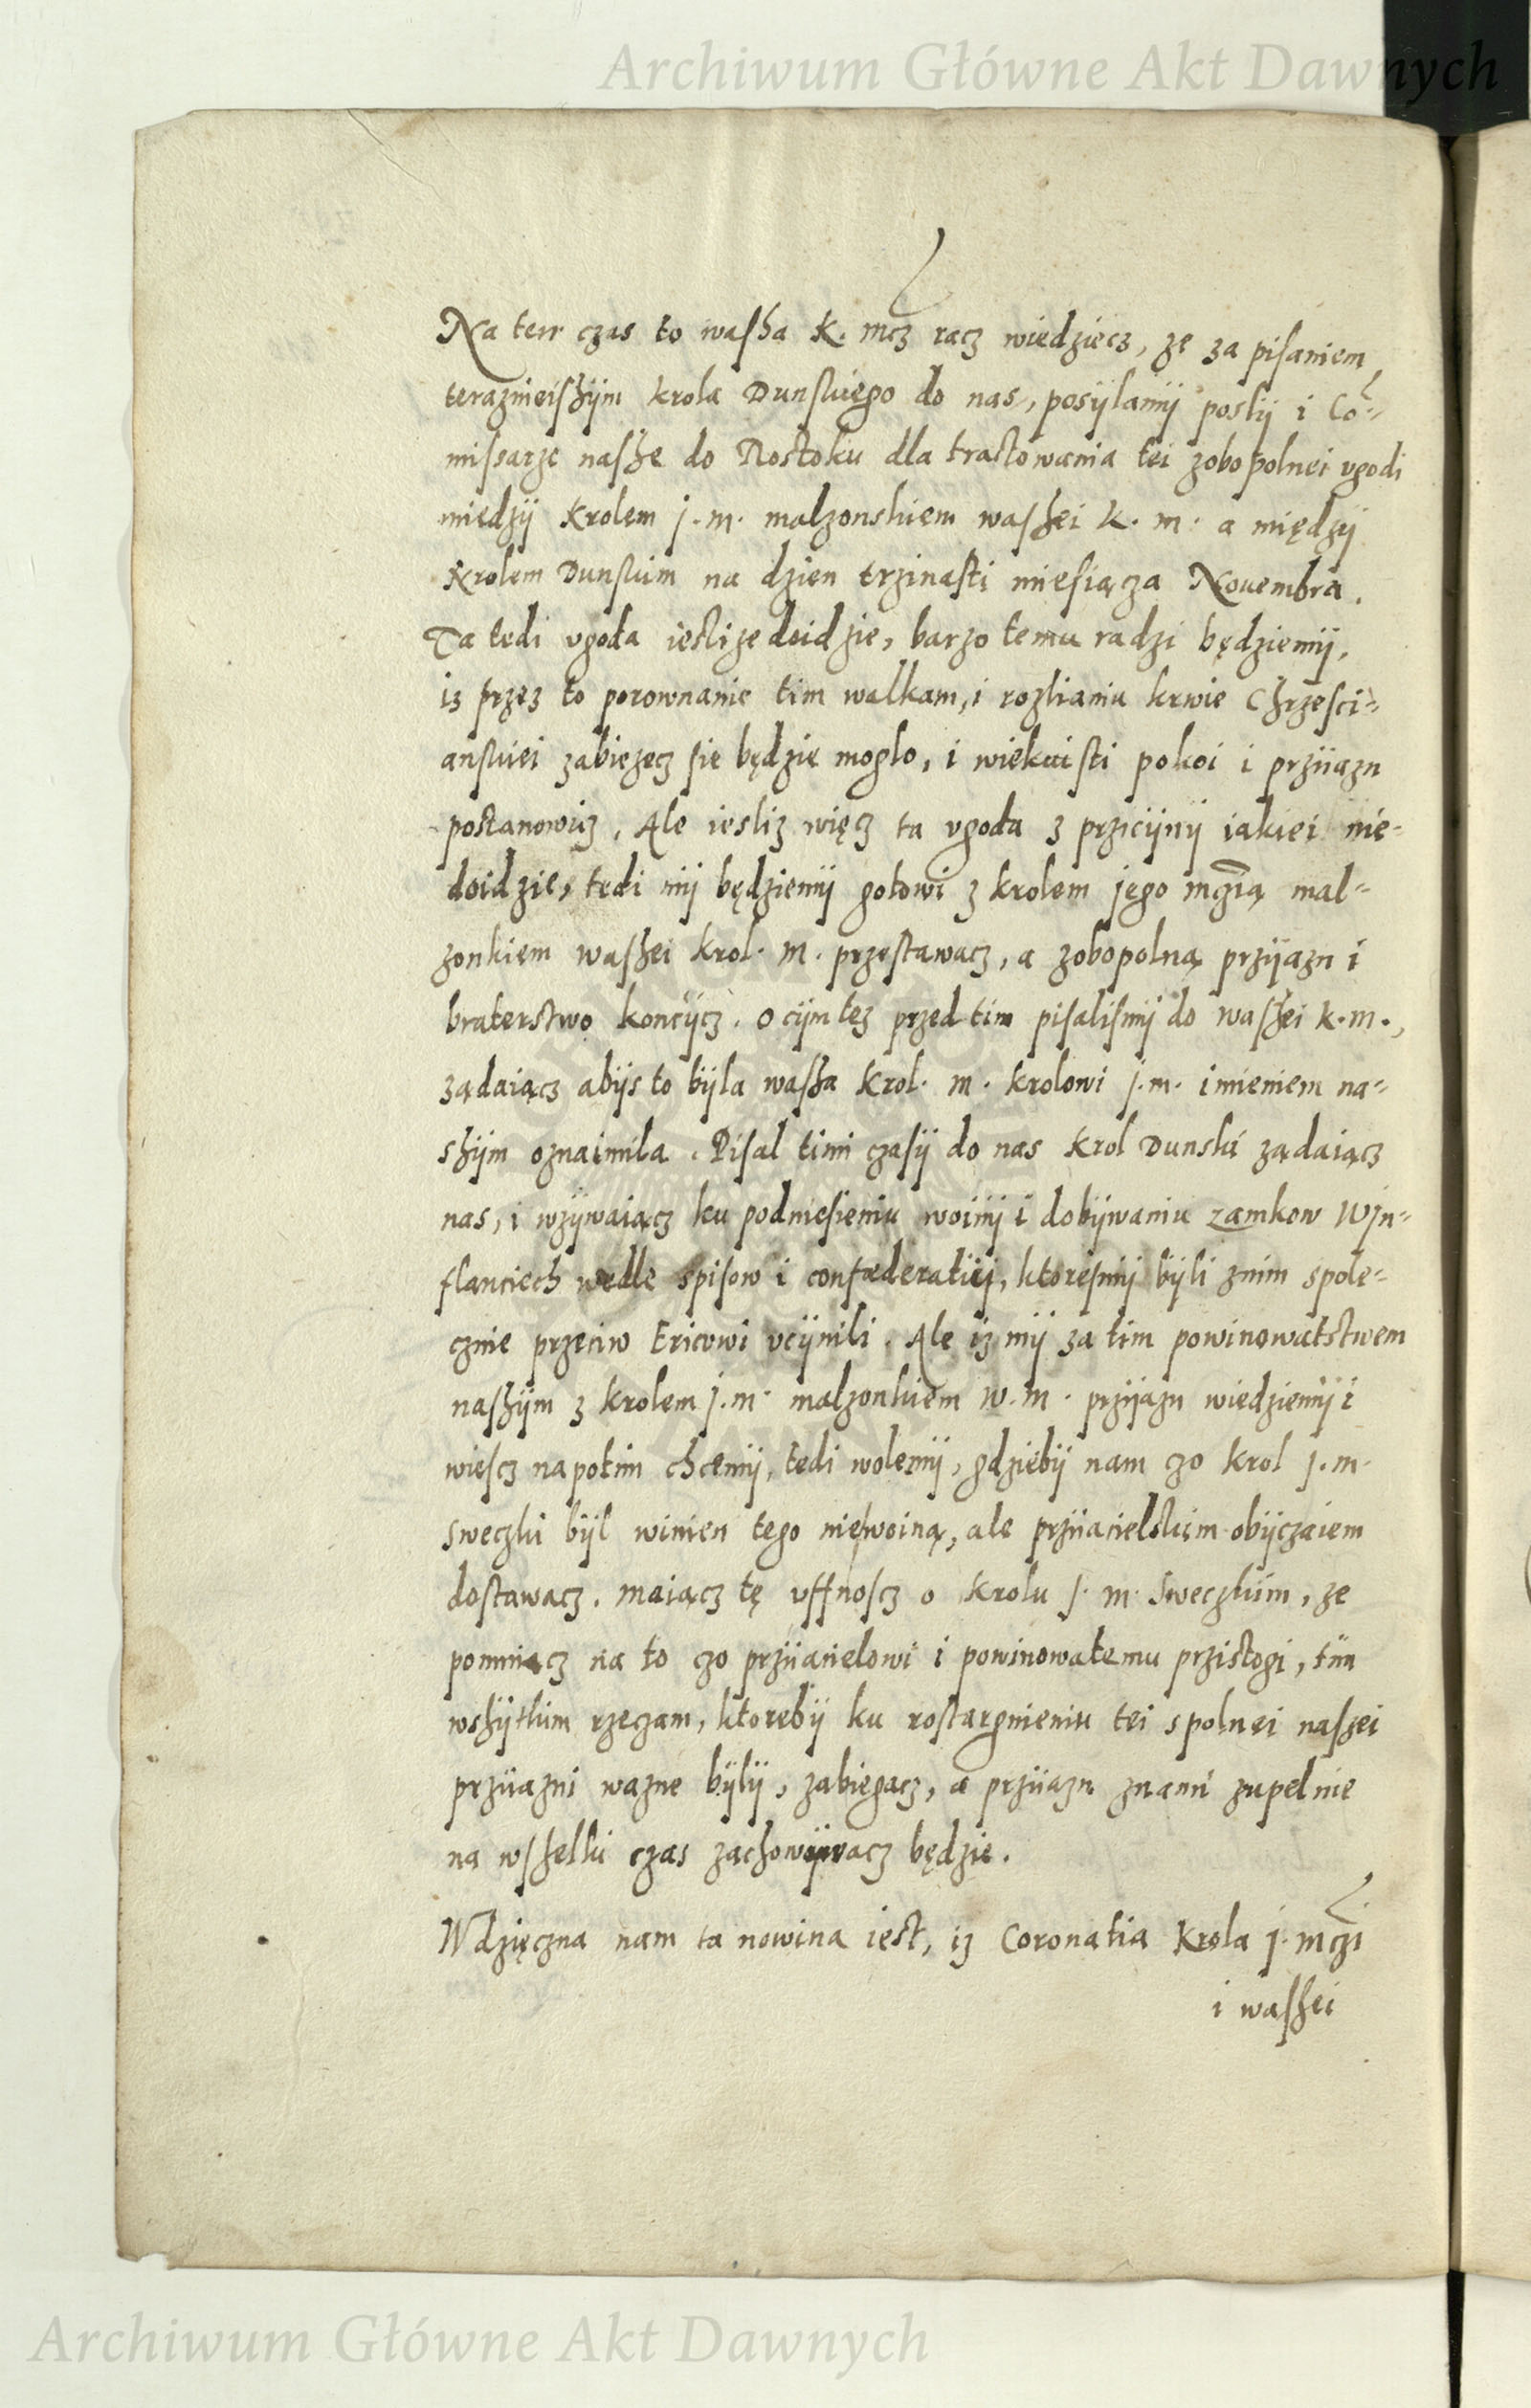 Archiwum Główne Akt Dawnych
Na ten czas to washa K. mcz racz wiedziecz, ze za pisaniem
terazmeishÿm krola Dunskiego do nas, posÿlamÿ poslÿ i Co=
missarze nashe do Rostoku dla tractowania tei zobopolnei vgodi
miedzÿ Krolem j. m. malzonskiem washei K. m. a międzÿ
Krolem Dunskim na dzien trzinasti miesiącza Nouembra.
Ta tedi vgoda iestlize doidzie, barzo temu radzi będziemÿ,
iz przez to porownanie tim walkam, i rozlianiu krwie Chrzesci=
anskiei zabiezecz sie będzie moglo, i wiekuisti pokoi i prziiazn
postanowicz. Ale iesliz więcz ta vgoda z prziczÿnÿ iakiei nie=
doidzie, tedi mÿ będziemÿ gotowi z krolem jego mczią mal=
zonkiem washei krol. m. przestawacz, a zobopolną przÿazn i
braterstwo konczÿcz. o czÿm tez przed tim pisalismÿ do washei k. m.,
ządaiącz abÿs to bÿla washa krol. m. krolowi j. m. imieniem na=
shÿm oznaimila. Pisal timi czasÿ do nas Krol Dunski ządaiącz
nas, i wzÿwaiącz ku podniesieniu woinÿ i dobÿwaniu zamkow w Jn=
flanciech wedle spisow i confœderatiÿ, ktoresmÿ bÿli znim spole=
cznie przeciw Ericowi vcÿnili. Ale iz mÿ za tim powinowatstwem
nashÿm z krolem j. m. malzonkiem w. m. prziiazn wiedziemÿ i
wiescz napotim chcemÿ, tedi wolemÿ, gdziebÿ nam czo krol j. m.
Sweczki bÿl winien tego niewoiną, ale prziiacielskim obÿczaiem
dostawacz. maiącz tę vffnoscz o Krolu j. m. Sweczkim, ze
pomniącz na to czo prziiacielowi i powinowatemu przistogi, tim
wshÿtkim rzeczam, ktorebÿ ku rostargnieniu tei spolnei nashei
prziiazni wazne bÿlÿ, zabiegacz, a prziiazn znami zupelnie
na wshelki czas zachowÿwacz będzie.
Wdzięczna nam ta nowina iest, iz Coronatia Krola j. mczi
i washei
Archiwum Główne Akt Dawnych